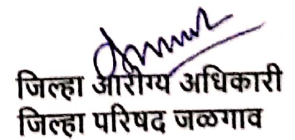 जिल्हा आरोग्य अधिकारी
जिल्हा परिषद जळगाव